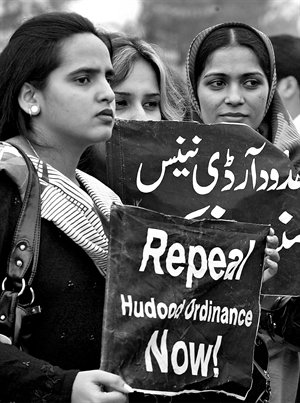 حدود آرڈی نینس
Repeal
Hudood Ordinance
Now!